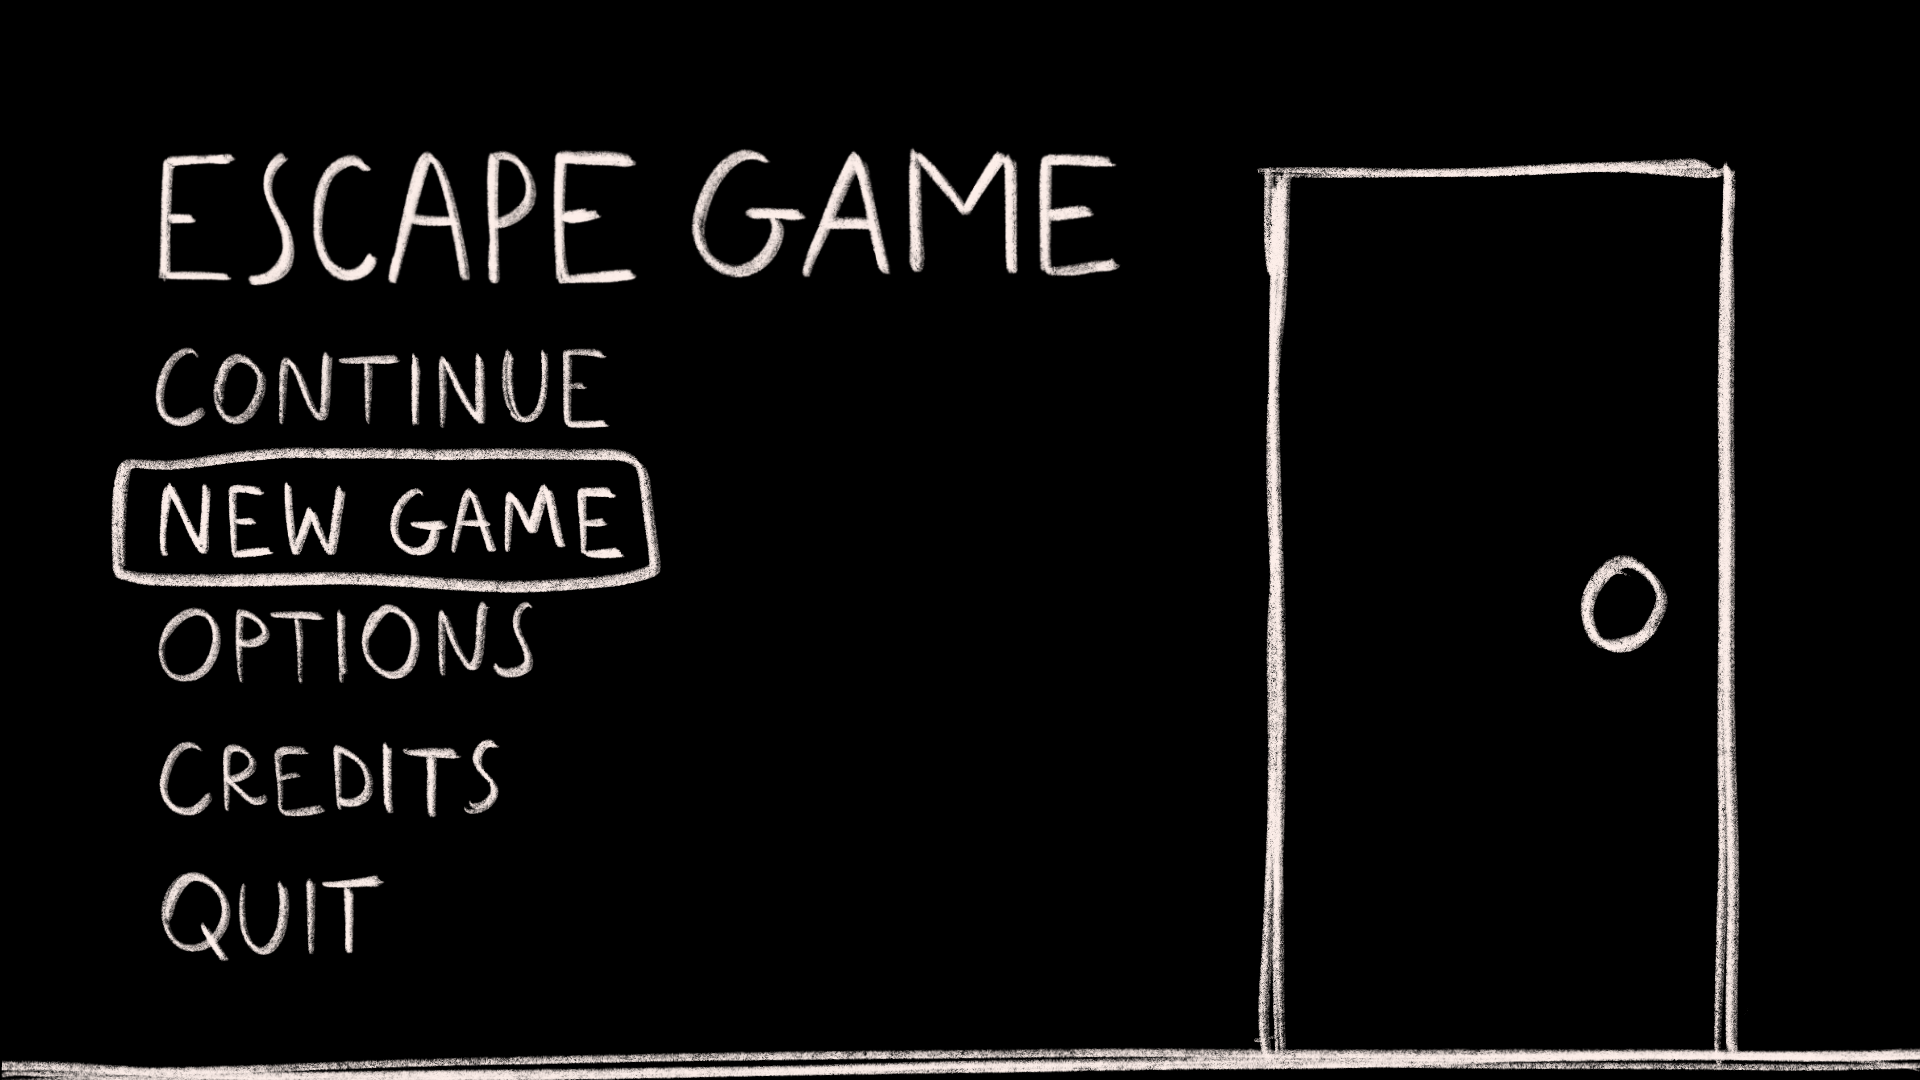 ESCAPE GAME
CONTINUE
NEW GAME
OPTIONS
CREDITS
QUIT